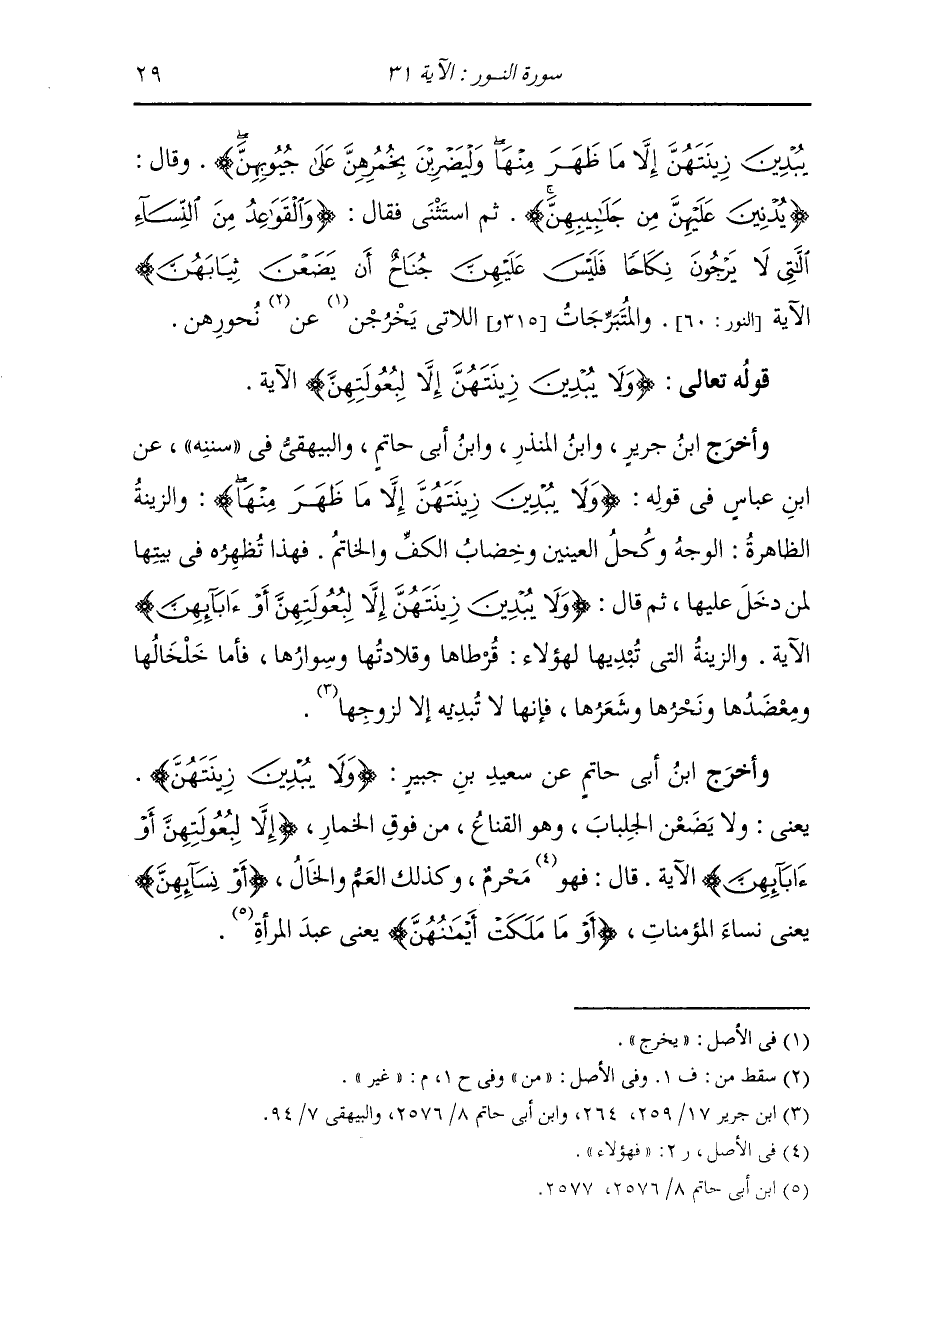 سورة النور : الآية ٣١ ٢٩
يُبْدِينَ زِينَتَهُنَّ إِلَّا مَا ظَهَرَ مِنْهَاۖ وَلْيَضْرِبْنَ بِخُمُرِهِنَّ عَلَىٰ جُيُوبِهِنَّۖ﴾ . وقال :
﴿يُدْنِينَ عَلَيْهِنَّ مِن جَلَٰبِيبِهِنَّۚ﴾ . ثم استَثْنَى فقال : ﴿وَٱلْقَوَٰعِدُ مِنَ ٱلنِّسَآءِ
ٱلَّٰتِى لَا يَرْجُونَ نِكَاحًا فَلَيْسَ عَلَيْهِنَّ جُنَاحٌ أَن يَضَعْنَ ثِيَابَهُنَّ﴾
الآية [النور : ٦٠] . والمُتَبَرِّجَاتُ [٣١٥و] اللاتى يَخْرُجْن(١) عن(٢) نُحورِهن .
قولُه تعالى : ﴿وَلَا يُبْدِينَ زِينَتَهُنَّ إِلَّا لِبُعُولَتِهِنَّ﴾ الآية .
وأخرَج ابنُ جريرٍ ، وابنُ المنذرِ ، وابنُ أبى حاتمٍ ، والبيهقىُّ فى «سننِه» ، عن
ابنِ عباسٍ فى قولِه : ﴿وَلَا يُبْدِينَ زِينَتَهُنَّ إِلَّا مَا ظَهَرَ مِنْهَاۖ﴾ : والزينةُ
الظاهرةُ : الوجهُ وكُحلُ العينين وخِضابُ الكفِّ والخاتمُ . فهذا تُظهِرُه فى بيتِها
لمن دخَلَ عليها ، ثم قال : ﴿وَلَا يُبْدِينَ زِينَتَهُنَّ إِلَّا لِبُعُولَتِهِنَّ أَوْ ءَابَآئِهِنَّ﴾
الآية . والزينةُ التى تُبْدِيها لهؤلاء : قُرْطاها وقلادتُها وسِوارُها ، فأما خَلْخَالُها
ومِعْضَدُها ونَحْرُها وشَعَرُها ، فإنها لا تُبدِيه إلا لزوجِها(٣) .
وأخرَج ابنُ أبى حاتمٍ عن سعيدِ بنِ جبيرٍ : ﴿وَلَا يُبْدِينَ زِينَتَهُنَّ﴾ .
يعنى : ولا يَضَعْن الجِلبابَ ، وهو القناعُ ، من فوقِ الخمارِ ، ﴿إِلَّا لِبُعُولَتِهِنَّ أَوْ
ءَابَآئِهِنَّ﴾ الآية . قال : فهو(٤) مَحْرمٌ ، وكذلك العَمُّ والخَالُ ، ﴿أَوْ نِسَآئِهِنَّ﴾
يعنى نساءَ المؤمناتِ ، ﴿أَوْ مَا مَلَكَتْ أَيْمَٰنُهُنَّ﴾ يعنى عبدَ المرأةِ(٥) .
(١) فى الأصل : «يخرج» .
(٢) سقط من : ف ١. وفى الأصل : «من» وفى ح ١، م : «غير» .
(٣) ابن جرير ١٧/ ٢٥٩، ٢٦٤، وابن أبى حاتم ٨/ ٢٥٧٦، والبيهقى ٧/ ٩٤.
(٤) فى الأصل ، ر ٢: «فهؤلاء» .
(٥) ابن أبى حاتم ٨/ ٢٥٧٦، ٢٥٧٧.